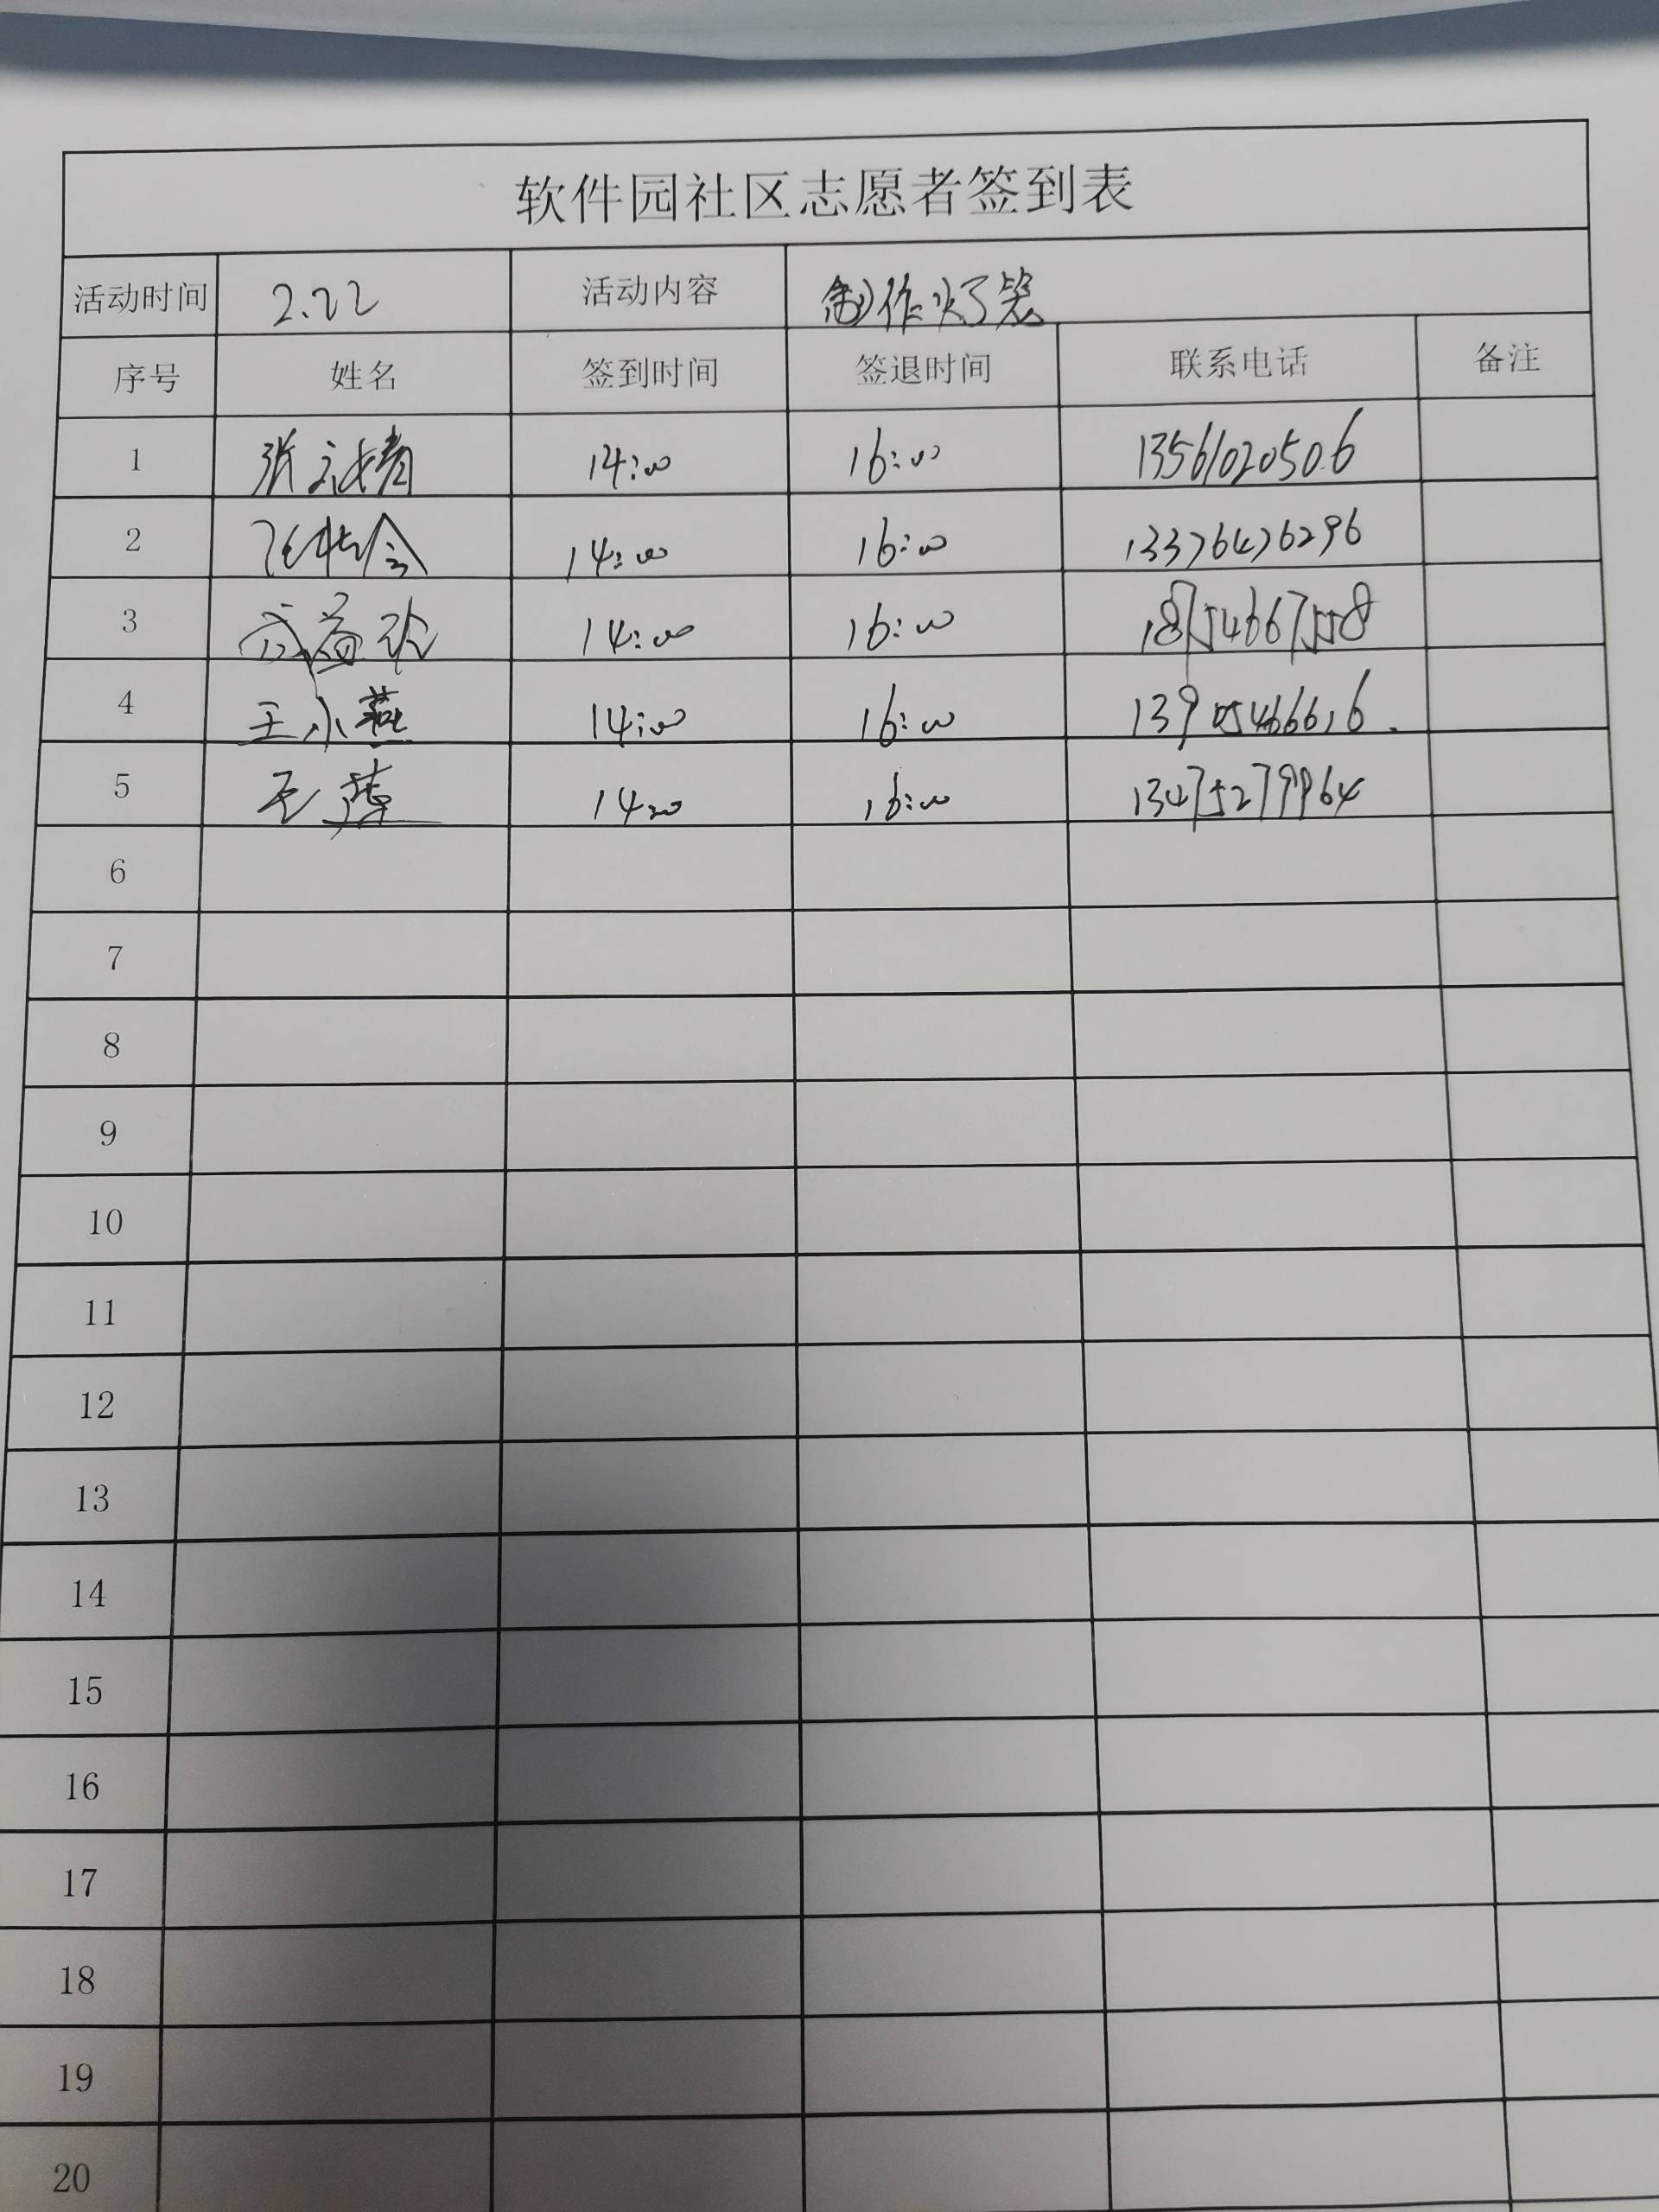 软件园社区志愿者签到表
活动时间 2.22 活动内容 制作灯笼
序号 姓名 签到时间 签退时间 联系电话 备注
1 张 14:00 16:00 13561020506
2 14:00 16:00 13376476296
3 14:00 16:00 18754667558
4 王小燕 14:00 16:00 13905466616.
5 王 14:00 16:00 13475279964
6
7
8
9
10
11
12
13
14
15
16
17
18
19
20